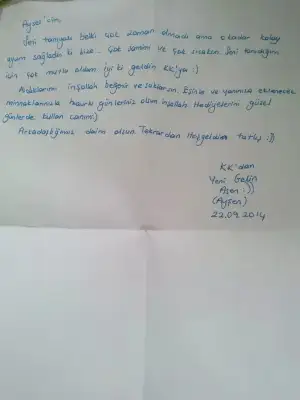 Aysel'cim,
Seni tanıyalı belki çok zaman olmadı ama o kadar kolay
uyum sağladın ki bize... Çok samimi ve çok sıcaksın Seni tanıdığım
için çok mutlu oldum iyi ki geldin KK'ya :)
Aldıklarımı inşallah beğenir ve saklarsın. Eşinle ve yanınıza eklenecek
minnaklarınızla huzurlu günleriniz olsun inşallah. Hediyelerini güzel
günlerde kullan canım:)
Arkadaşlığımız daim olsun. Tekrardan Hoşgeldin tatlış :))
KK'dan
Yeni Gelin
(Ayşen)
22.09.2014